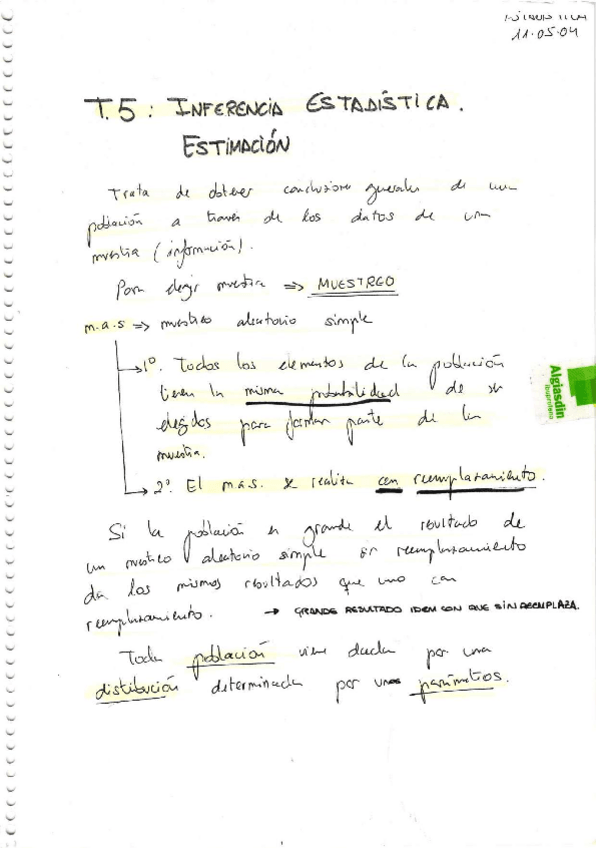 ESTADISTICA
11·05·04
T.5: INFERENCIA ESTADÍSTICA.
ESTIMACIÓN
Trata de obtener conclusiones generales de una
población a traves de los datos de una
muestra (información).
Para elegir muestra => MUESTREO
m.a.s => muestreo aleatorio simple
1º. Todos los elementos de la población
tienen la misma probabilidad de ser
elegidos para formar parte de la
muestra.
2º. El m.a.s. se realiza con reemplazamiento.
Si la población es grande el resultado de
un muestreo aleatorio simple sin reemplazamiento
da los mismos resultados que uno con
reemplazamiento. → GRANDE RESULTADO IDEM CON QUE SIN REEMPLAZA.
Toda población viene dada por una
distribución determinada por unos parámetros.
Algiasdin
ibuprofeno